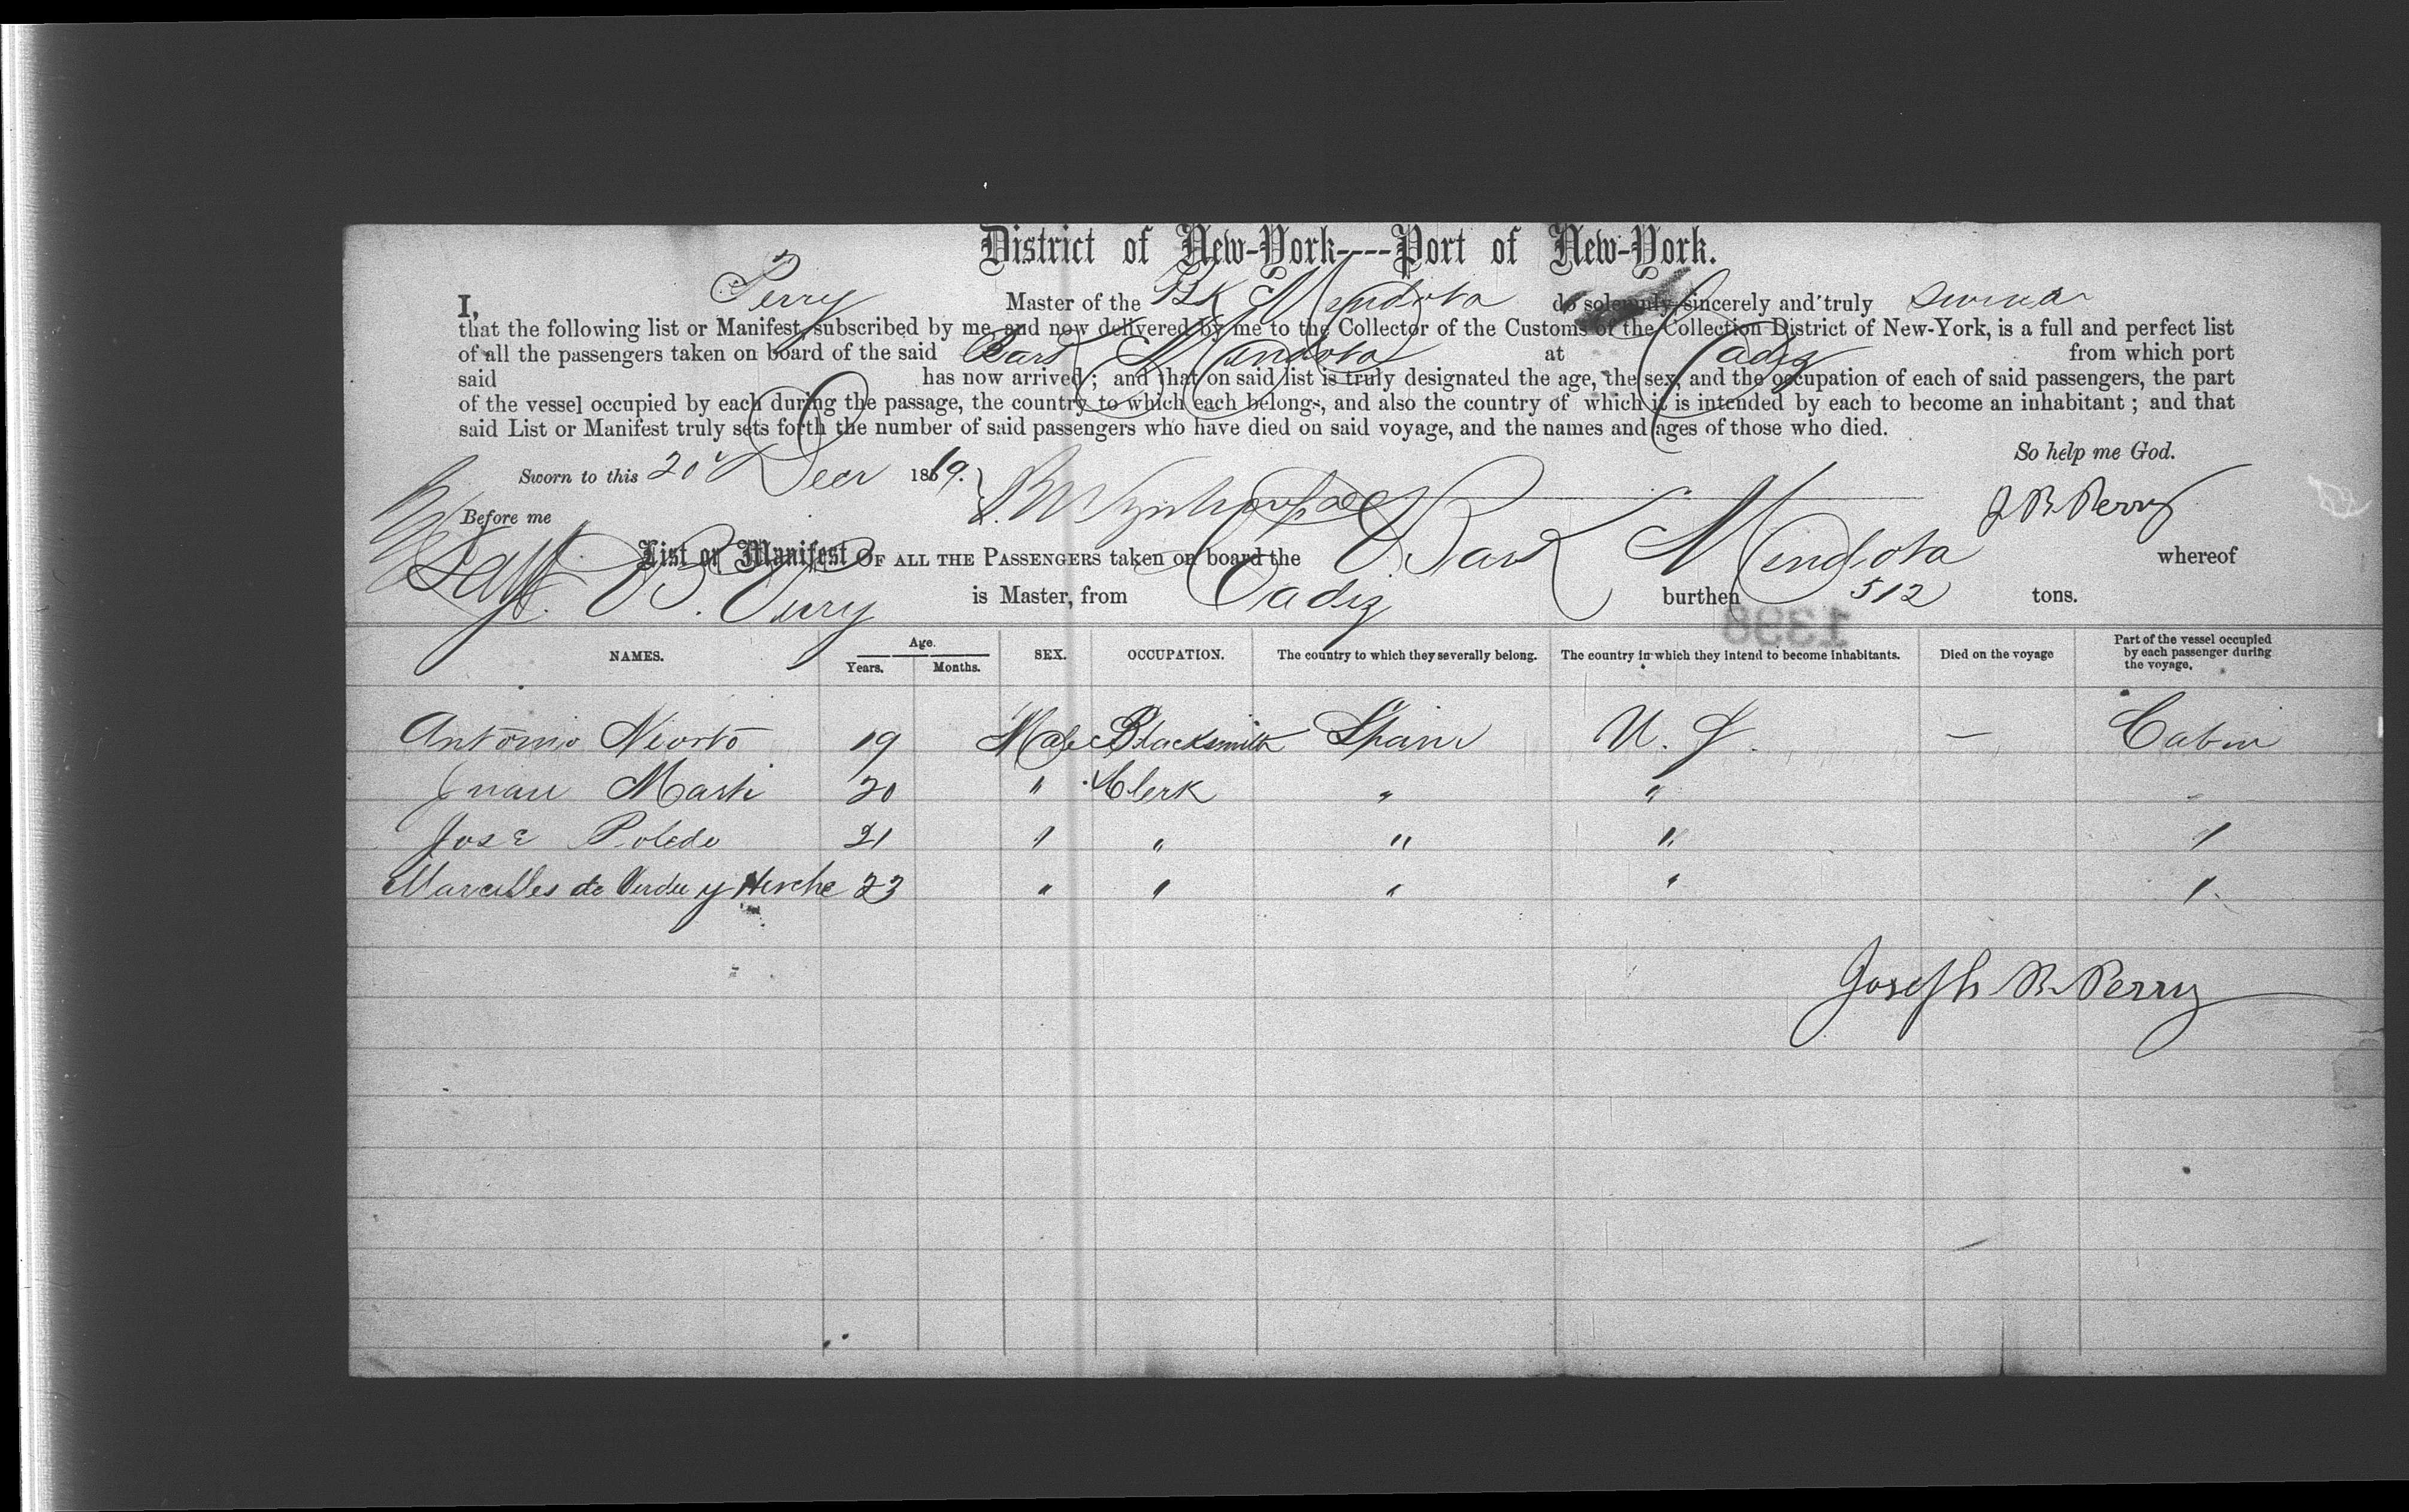 District of New-York----Port of New-York.
I, Perry Master of the Bk Mendota do solemnly, sincerely and truly swear
that the following list or Manifest, subscribed by me, and now delivered by me to the Collector of the Customs of the Collection District of New-York, is a full and perfect list
of all the passengers taken on board of the said Bark Mendota at Cadiz from which port
said has now arrived; and that on said list is truly designated the age, the sex, and the occupation of each of said passengers, the part
of the vessel occupied by each during the passage, the country to which each belongs, and also the country of which it is intended by each to become an inhabitant; and that
said List or Manifest truly sets forth the number of said passengers who have died on said voyage, and the names and ages of those who died.
So help me God.
Sworn to this 20 Decr 1869.
Before me J B Perry
List or Manifest OF ALL THE PASSENGERS taken on board the Bark Mendota whereof
B. Perry is Master, from Cadiz burthen 512 tons.
1398
NAMES. Age. Years. Months. SEX. OCCUPATION. The country to which they severally belong. The country in which they intend to become inhabitants. Died on the voyage Part of the vessel occupied by each passenger during the voyage.
Antonio 19 Male Blacksmith Spain U. S. — Cabin
Juan Marti 20 " Clerk " " "
Jose Poledo 21 " " " " "
de Verdu y 23 " " " " "
Joseph B. Perry